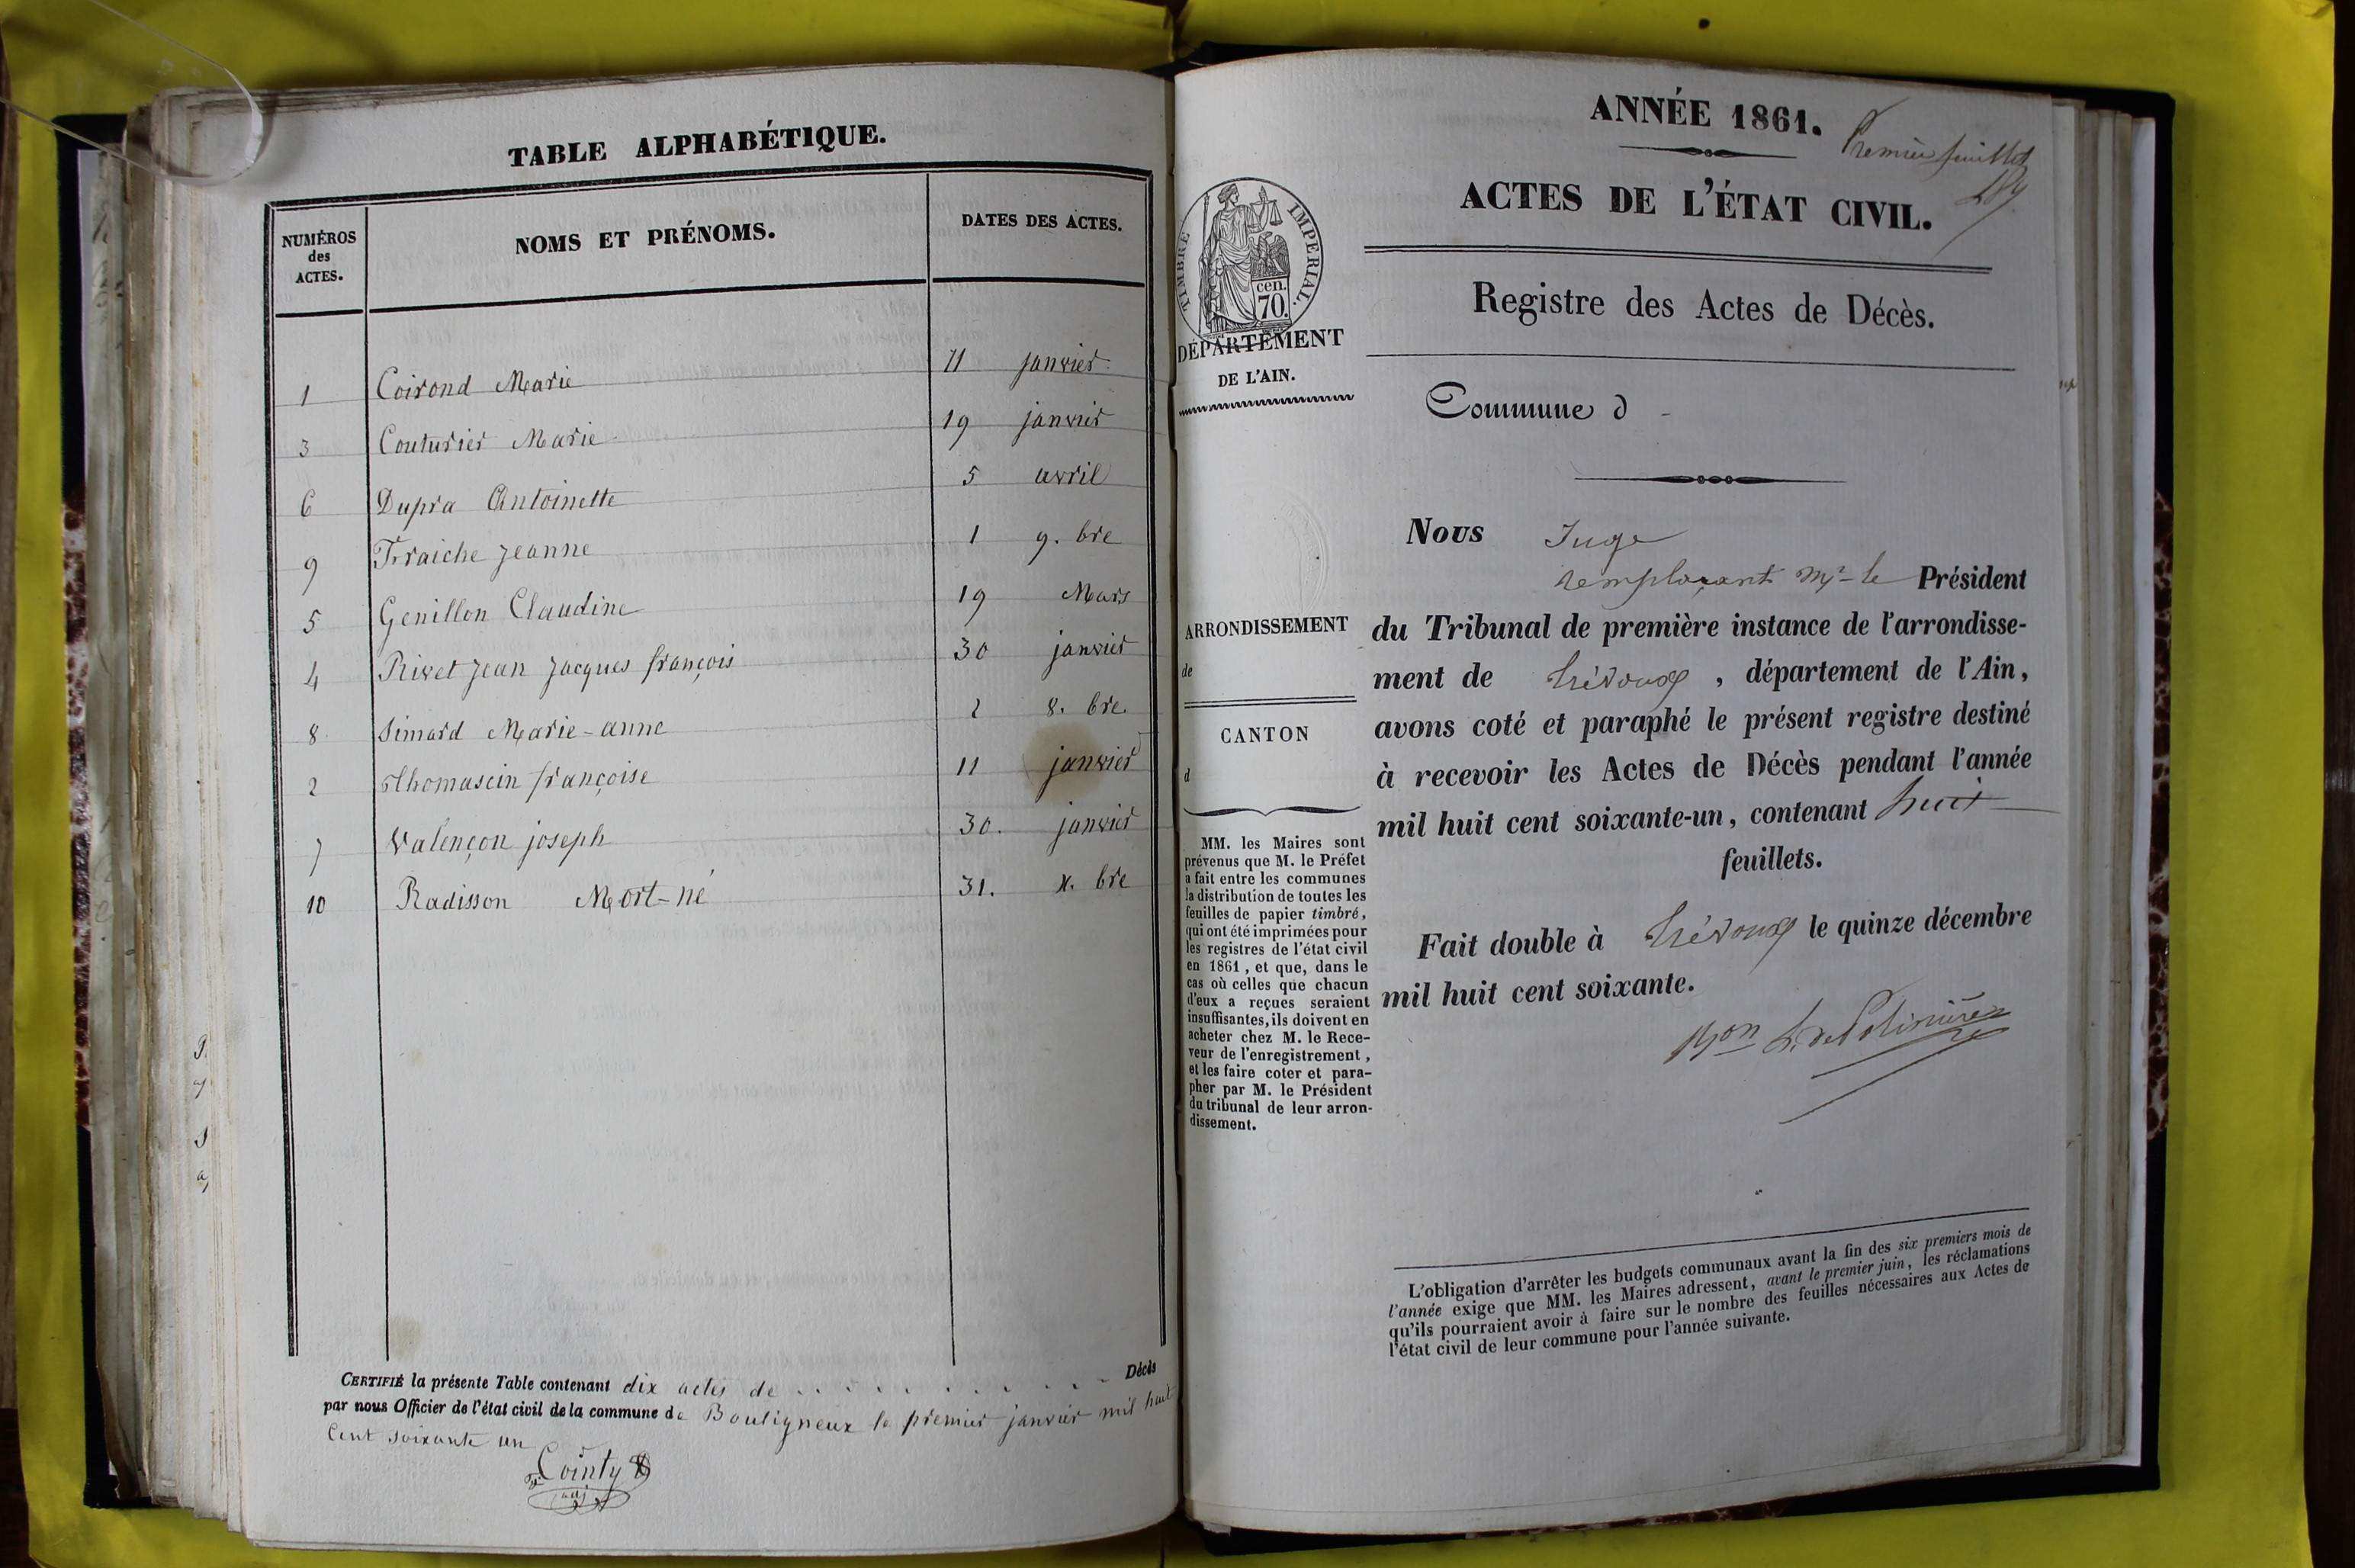 TABLE ALPHABÉTIQUE.
NUMÉROS des ACTES. NOMS ET PRÉNOMS. DATES DES ACTES.
1 Coirond Marie 11 janvier
3 Couturier Marie 19 janvier
6 Dupra Antoinette 5 avril
9 Fraiche jeanne 1 9. bre
5 Genillon Claudine 19 Mars
4 Rivet jean jacques françois 30 janvier
8 Simard Marie-anne 2 8. bre
2 Thomassin françoise 11 janvier
7 Valençon joseph 30. janvier
10 Radisson Mort-né 31. x. bre
CERTIFIÉ la présente Table contenant dix actes de . . . . . . . . . . Décès
par nous Officier de l'état civil de la commune de Bouligneux le premier janvier mil huit
Cent soixante un
Cointy
adj
ANNÉE 1861.
Premier feuillet
ACTES DE L'ÉTAT CIVIL.
TIMBRE IMPÉRIAL.
cen.
70.
DÉPARTEMENT
DE L'AIN.
Registre des Actes de Décès.
Commune d
Nous Juge
remplaçant Mr le Président
du Tribunal de première instance de l'arrondisse-
ment de Trévoux, département de l'Ain,
avons coté et paraphé le présent registre destiné
à recevoir les Actes de Décès pendant l'année
mil huit cent soixante-un, contenant huit
feuillets.
Fait double à Trévoux le quinze décembre
mil huit cent soixante.
ARRONDISSEMENT
de
CANTON
d
MM. les Maires sont
prévenus que M. le Préfet
a fait entre les communes
la distribution de toutes les
feuilles de papier timbré,
qui ont été imprimées pour
les registres de l'état civil
en 1861, et que, dans le
cas où celles que chacun
d'eux a reçues seraient
insuffisantes, ils doivent en
acheter chez M. le Rece-
veur de l'enregistrement,
et les faire coter et para-
pher par M. le Président
du tribunal de leur arron-
dissement.
L'obligation d'arrêter les budgets communaux avant la fin des six premiers mois de
l'année exige que MM. les Maires adressent, avant le premier juin, les réclamations
qu'ils pourraient avoir à faire sur le nombre des feuilles nécessaires aux Actes de
l'état civil de leur commune pour l'année suivante.